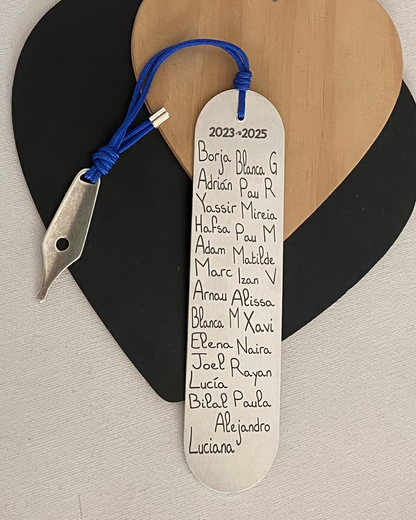 2023-2025
Borja Blanca G
Adrián Pau R
Yassir Mireia
Hafsa Pau M
Adam Matilde
Marc Izan V
Arnau Alissa
Blanca M Xavi
Elena Naira
Joel Rayan
Lucía
Bilal Paula
Alejandro
Luciana